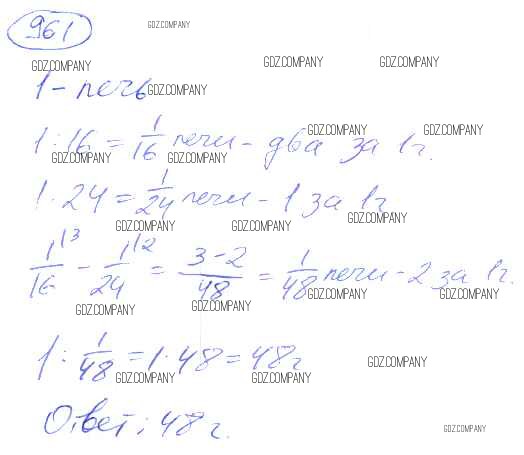 961
GDZ.COMPANY
GDZ.COMPANY GDZ.COMPANY GDZ.COMPANY
1 - печь
GDZ.COMPANY
1 : 16 = 1/16 печи - два за 1 ч.
GDZ.COMPANY GDZ.COMPANY
GDZ.COMPANY GDZ.COMPANY
1 : 24 = 1/24 печи - 1 за 1 ч
GDZ.COMPANY
GDZ.COMPANY GDZ.COMPANY
1/16 \3 - 1/24 \2 = 3-2/48 = 1/48 печи - 2 за 1 ч.
GDZ.COMPANY GDZ.COMPANY
GDZ.COMPANY GDZ.COMPANY
1 : 1/48 = 1 · 48 = 48 ч
GDZ.COMPANY
GDZ.COMPANY GDZ.COMPANY
Ответ: 48 ч.
GDZ.COMPANY